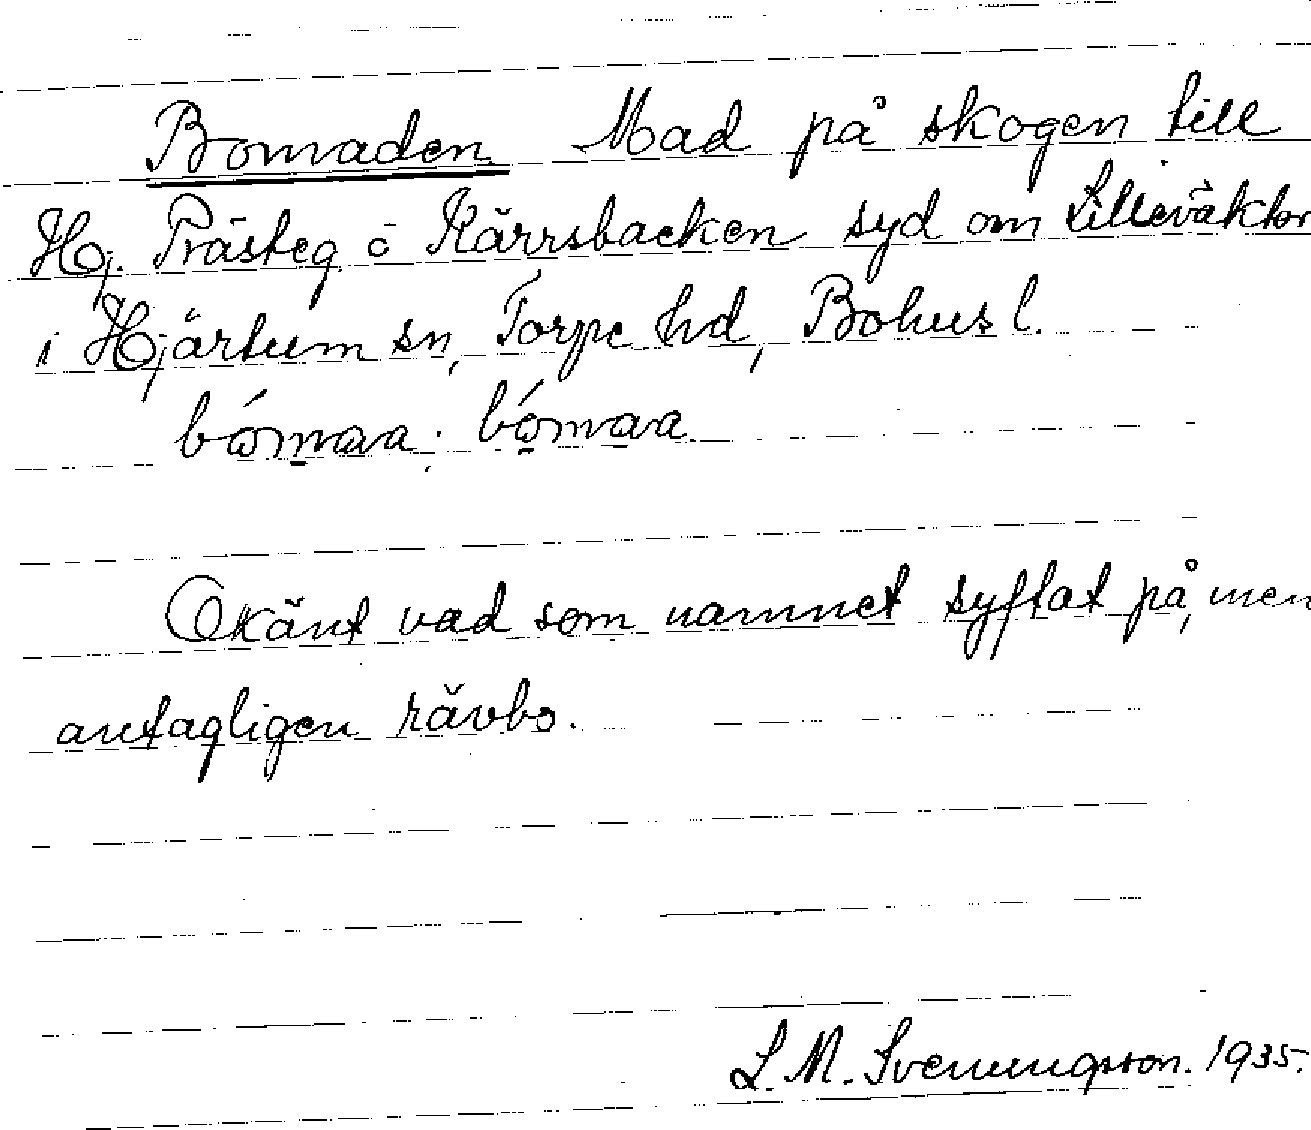 Bomaden Mad på skogen till
Hj. Prästeg. o Kärrsbacken syd om Lilleväktor
i Hjärtum sn, Torpe hd, Bohusl.
bómaa; bómaa
Okänt vad som namnet syftat på, men
antagligen rävbo.
L. M. Svenungsson. 1935.